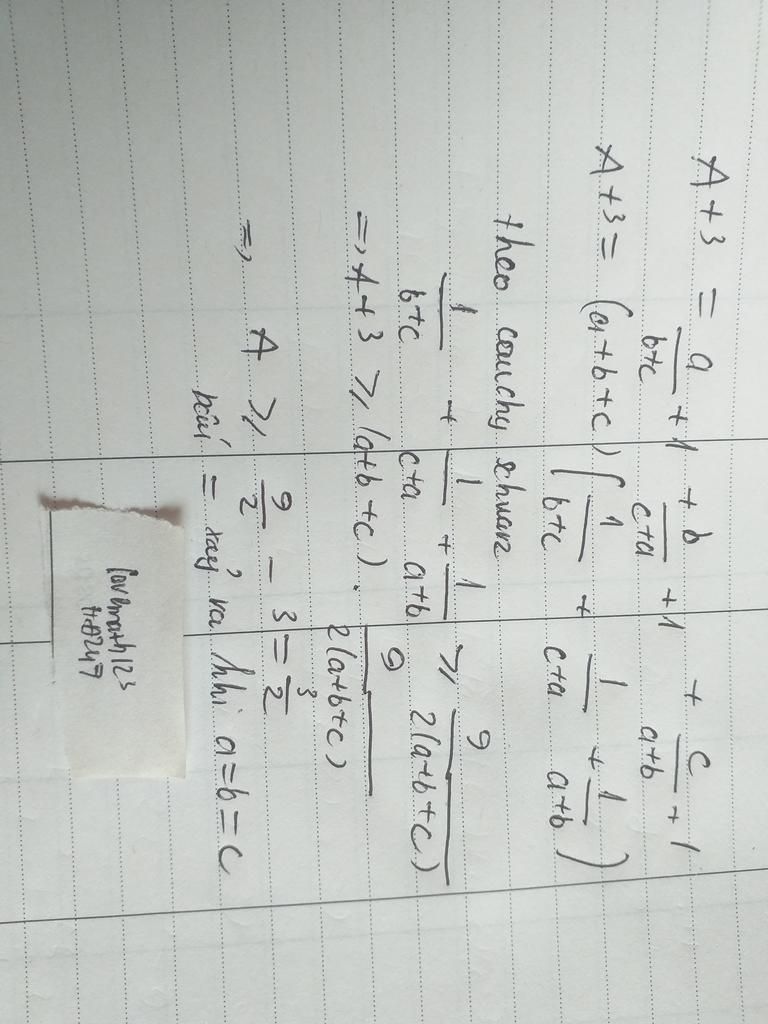 A+3 = a/(b+c) + 1 + b/(c+a) + 1 + c/(a+b) + 1
A+3 = (a+b+c) (1/(b+c) + 1/(c+a) + 1/(a+b))
theo cauchy schwarz
1/(b+c) + 1/(c+a) + 1/(a+b) ≥ 9/(2(a+b+c))
=> A+3 ≥ (a+b+c) . 9/(2(a+b+c))
=> A ≥ 9/2 - 3 = 3/2
= xảy ra khi a=b=c